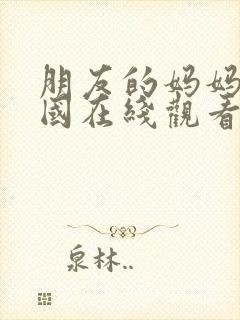 朋友的妈妈
國在綫觀看
泉林..